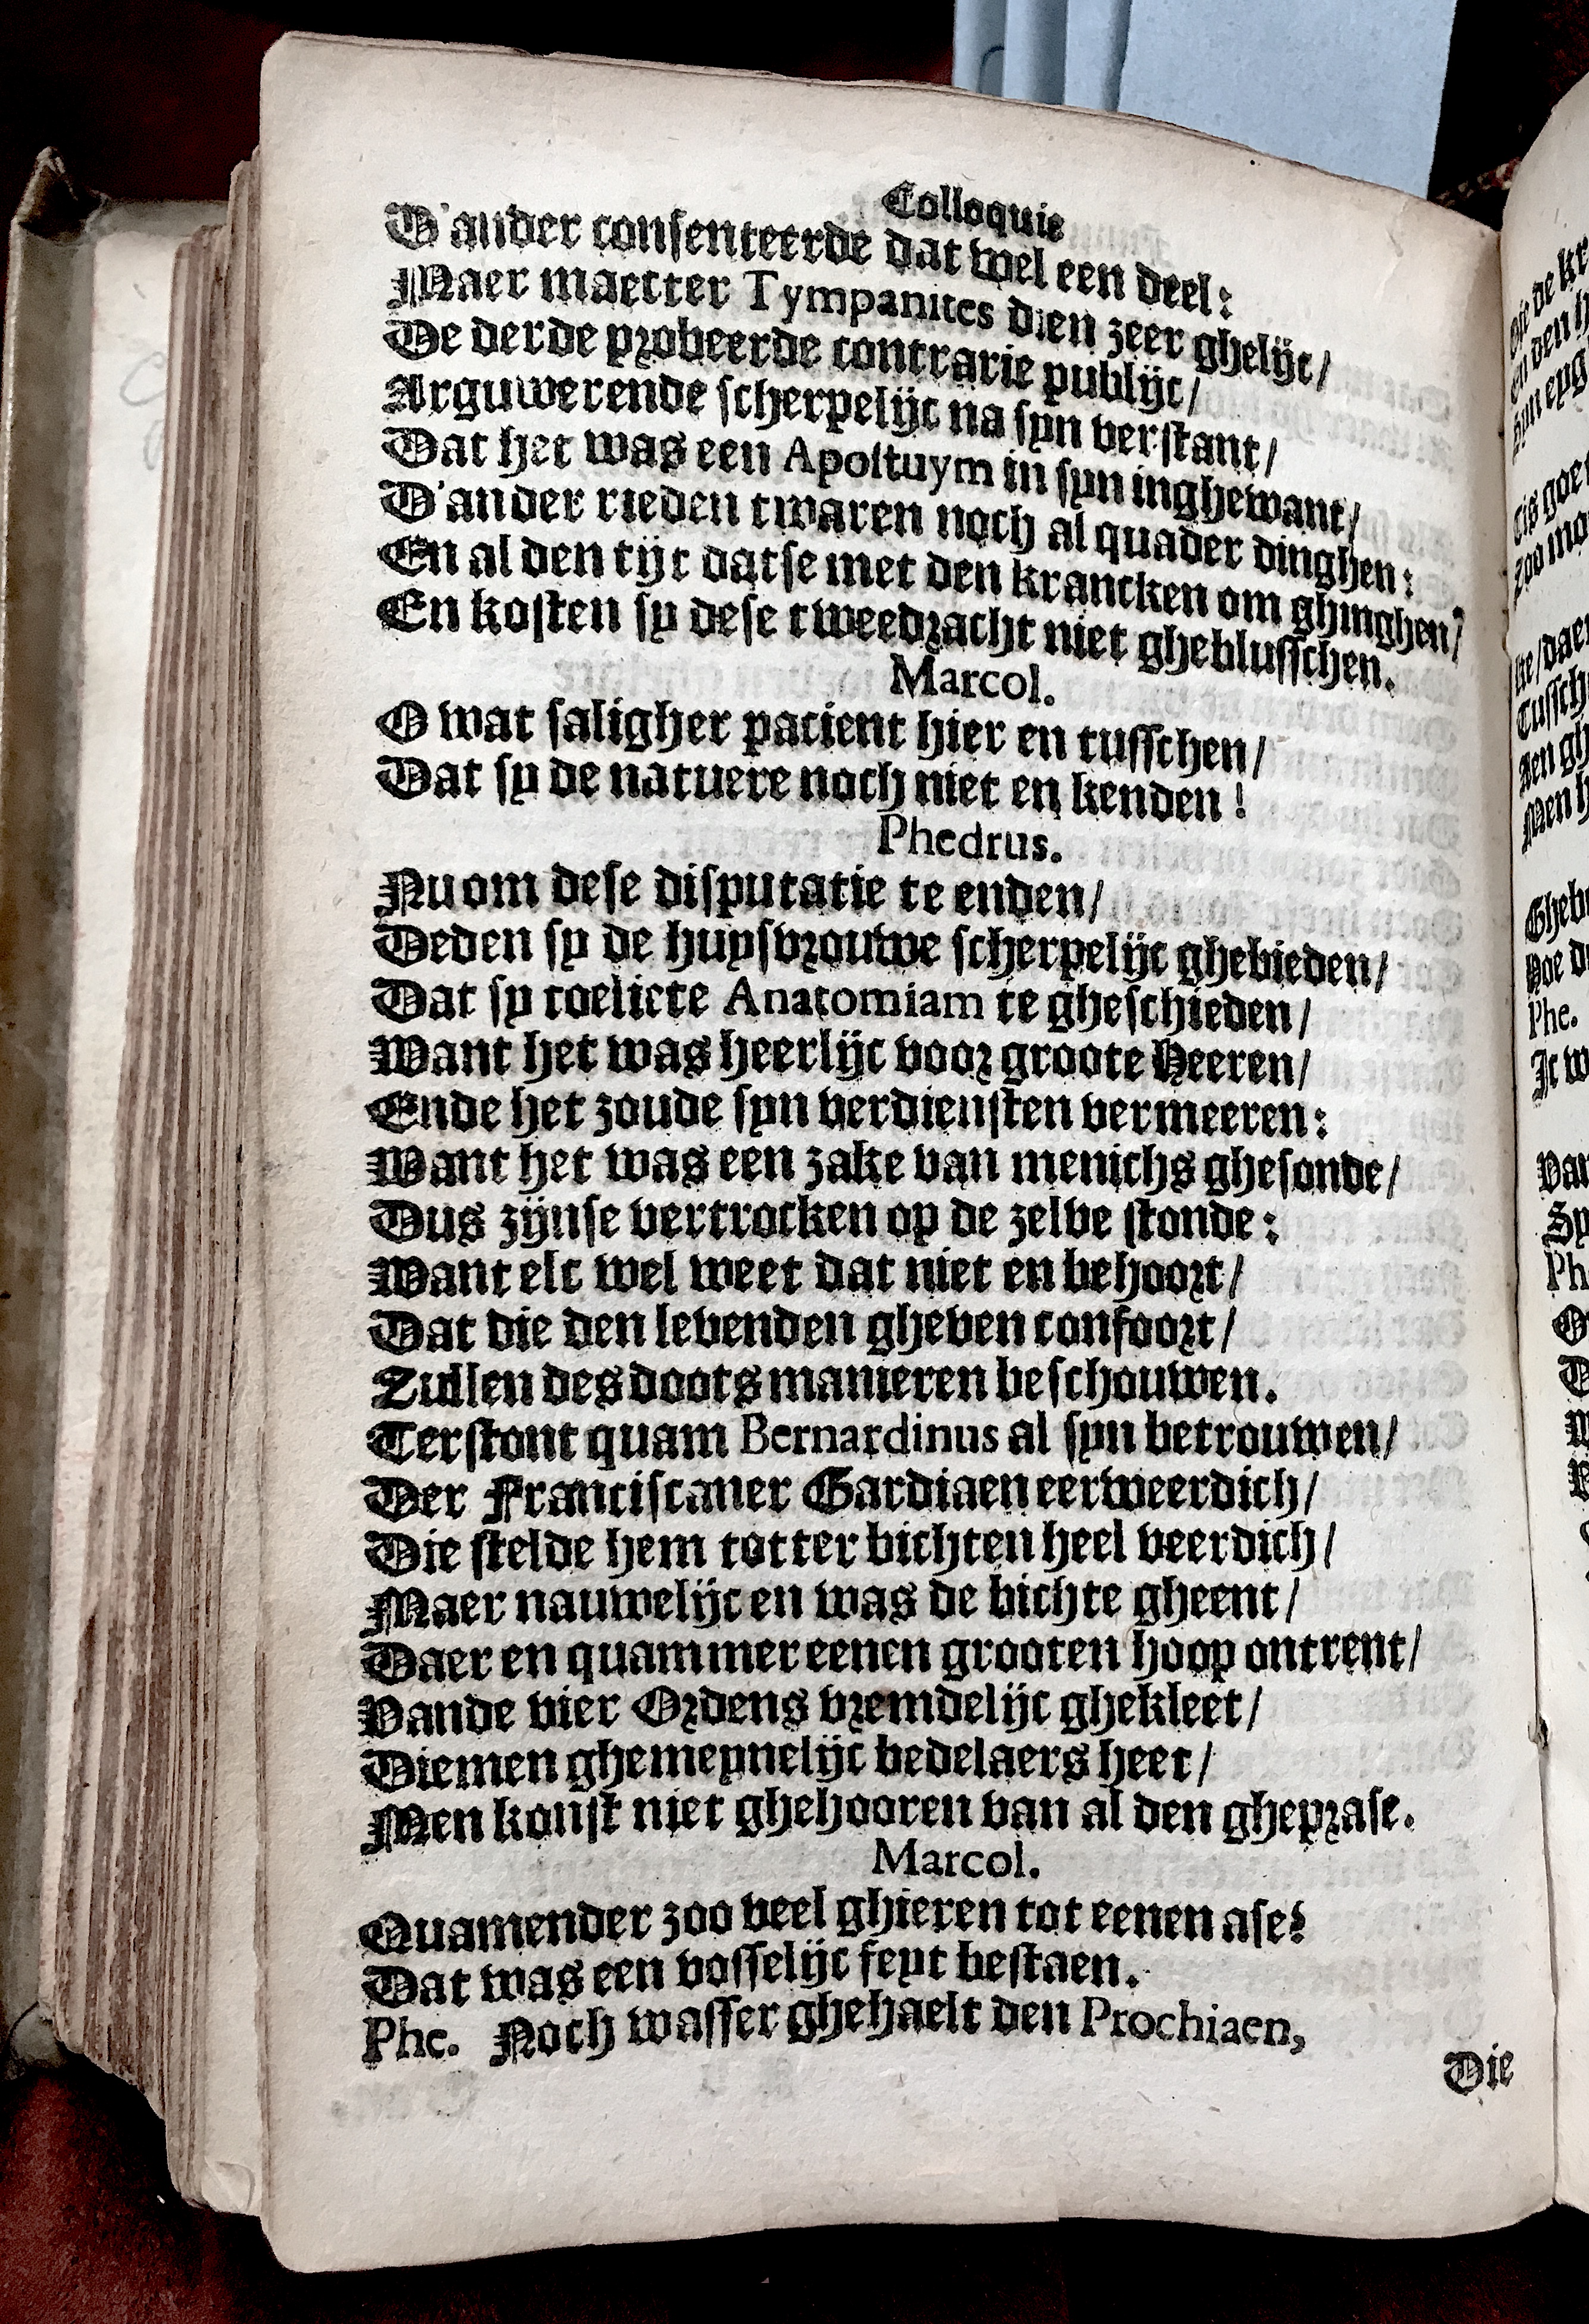 Colloquie
D'ander consenteerde dat wel een deel:
Maer maecter Tympanites dien zeer ghelijc/
De derde probeerde contrarie publijc/
Arguwerende scherpelijc na syn verstant/
Dat het was een Apostuym in syn inghewant/
D'ander rieden twaren noch al quader dinghen:
En al den tijt datse met den krancken om ghinghen/
En kosten sy dese tweedracht niet gheblusschen.
Marcol.
O wat saligher pacient hier en tusschen/
Dat sy de natuere noch niet en kenden!
Phedrus.
Nu om dese disputatie te enden/
Deden sy de huysvrouwe scherpelijc ghebieden/
Dat sy toelicte Anatomiam te gheschieden/
Want het was heerlijc voor groote Heeren/
Ende het zoude syn verdiensten vermeeren:
Want het was een zake van menichs ghesonde/
Dus zijnse vertrocken op de zelve stonde:
Want elc wel weet dat niet en behoort/
Dat die den levenden gheven confoort/
Zullen des doots manieren beschouwen.
Terstont quam Bernardinus al syn betrouwen/
Der Franciscaner Gardiaen eerweerdich/
Die stelde hem totter bichten heel veerdich/
Maer nauwelijc en was de bichte gheent/
Daer en quammer eenen grooten hoop ontrent/
Vande vier Ordens vremdelijc ghekleet/
Diemen ghemeynelijc bedelaers heet/
Men konst niet ghehooren van al den gheprase.
Marcol.
Quamender zoo veel ghieren tot eenen ase?
Dat was een vosselijc feyt bestaen.
Phe. Noch wasser ghehaelt den Prochiaen,
Die